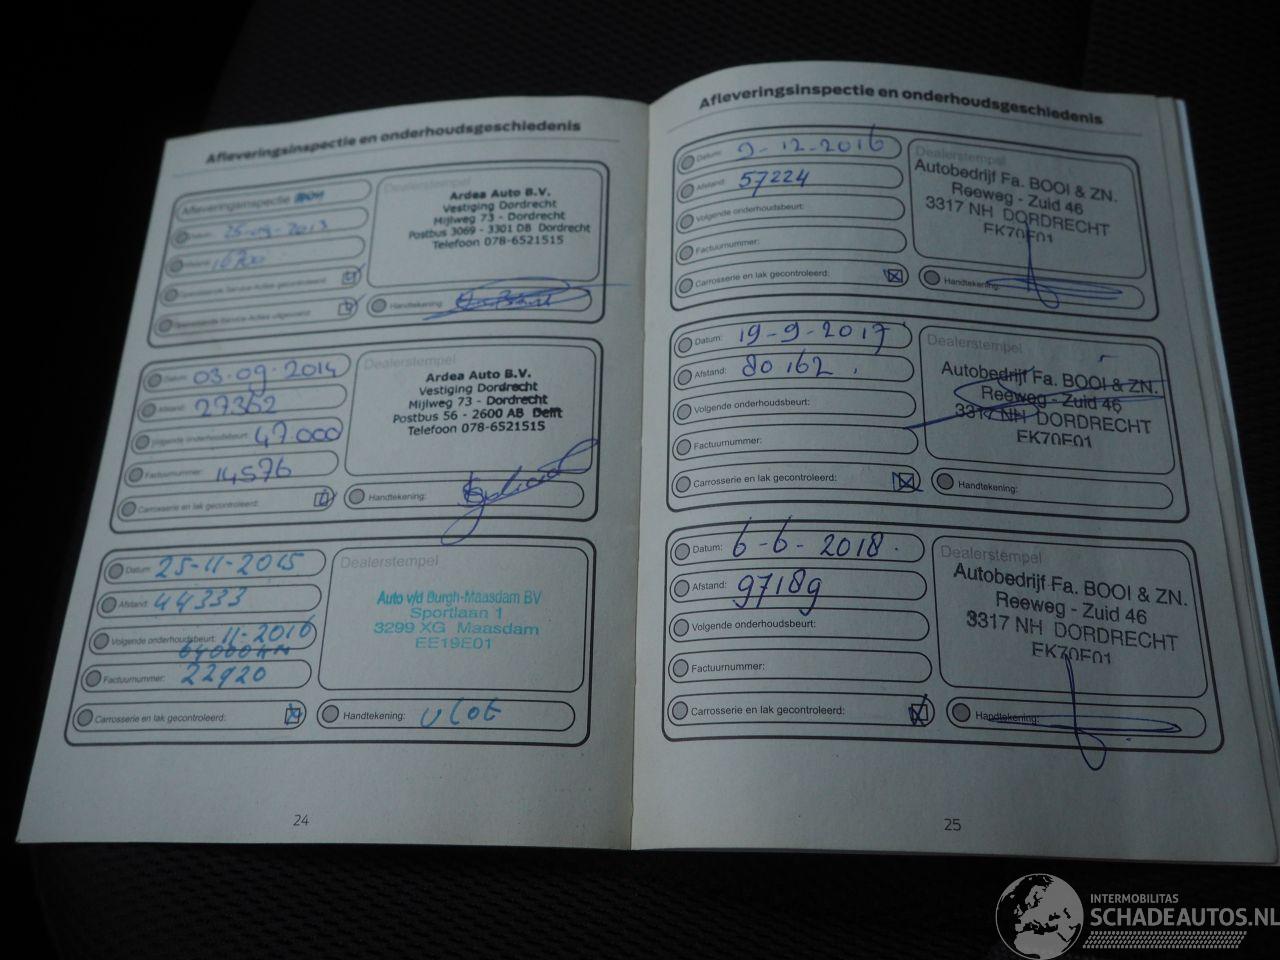 Afleveringsinspectie en onderhoudsgeschiedenis
Afleveringsinspectie
Datum: 25-09-2013
16700
Dealerstempel
Ardea Auto B.V.
Vestiging Dordrecht
Mijlweg 73 - Dordrecht
Postbus 3069 - 3301 DB Dordrecht
Telefoon 078-6521515
Handtekening:
Datum: 03-09-2014
Afstand: 27362
Volgende onderhoudsbeurt: 47.000
Factuurnummer: 14576
Carrosserie en lak gecontroleerd:
Dealerstempel
Ardea Auto B.V.
Vestiging Dordrecht
Mijlweg 73 - Dordrecht
Postbus 56 - 2600 AB Delft
Telefoon 078-6521515
Handtekening:
Datum: 25-11-2015
Afstand: 44333
Volgende onderhoudsbeurt: 11-2016
64000 km
Factuurnummer: 22920
Carrosserie en lak gecontroleerd:
Dealerstempel
Auto v/d Burgh-Maasdam BV
Sportlaan 1
3299 XG Maasdam
EE19E01
Handtekening: Vlot
24
Afleveringsinspectie en onderhoudsgeschiedenis
Datum: 9-12-2016
Afstand: 57224
Volgende onderhoudsbeurt:
Factuurnummer:
Carrosserie en lak gecontroleerd:
Dealerstempel
Autobedrijf Fa. BOOI & ZN.
Reeweg - Zuid 46
3317 NH DORDRECHT
EK70E01
Handtekening:
Datum: 19-9-2017
Afstand: 80162.
Volgende onderhoudsbeurt:
Factuurnummer:
Carrosserie en lak gecontroleerd:
Dealerstempel
Autobedrijf Fa. BOOI & ZN.
Reeweg - Zuid 46
3317 NH DORDRECHT
EK70E01
Handtekening:
Datum: 6-6-2018.
Afstand: 97189
Volgende onderhoudsbeurt:
Factuurnummer:
Carrosserie en lak gecontroleerd:
Dealerstempel
Autobedrijf Fa. BOOI & ZN.
Reeweg - Zuid 46
3317 NH DORDRECHT
EK70E01
Handtekening:
25
INTERMOBILITAS
SCHADEAUTOS.NL